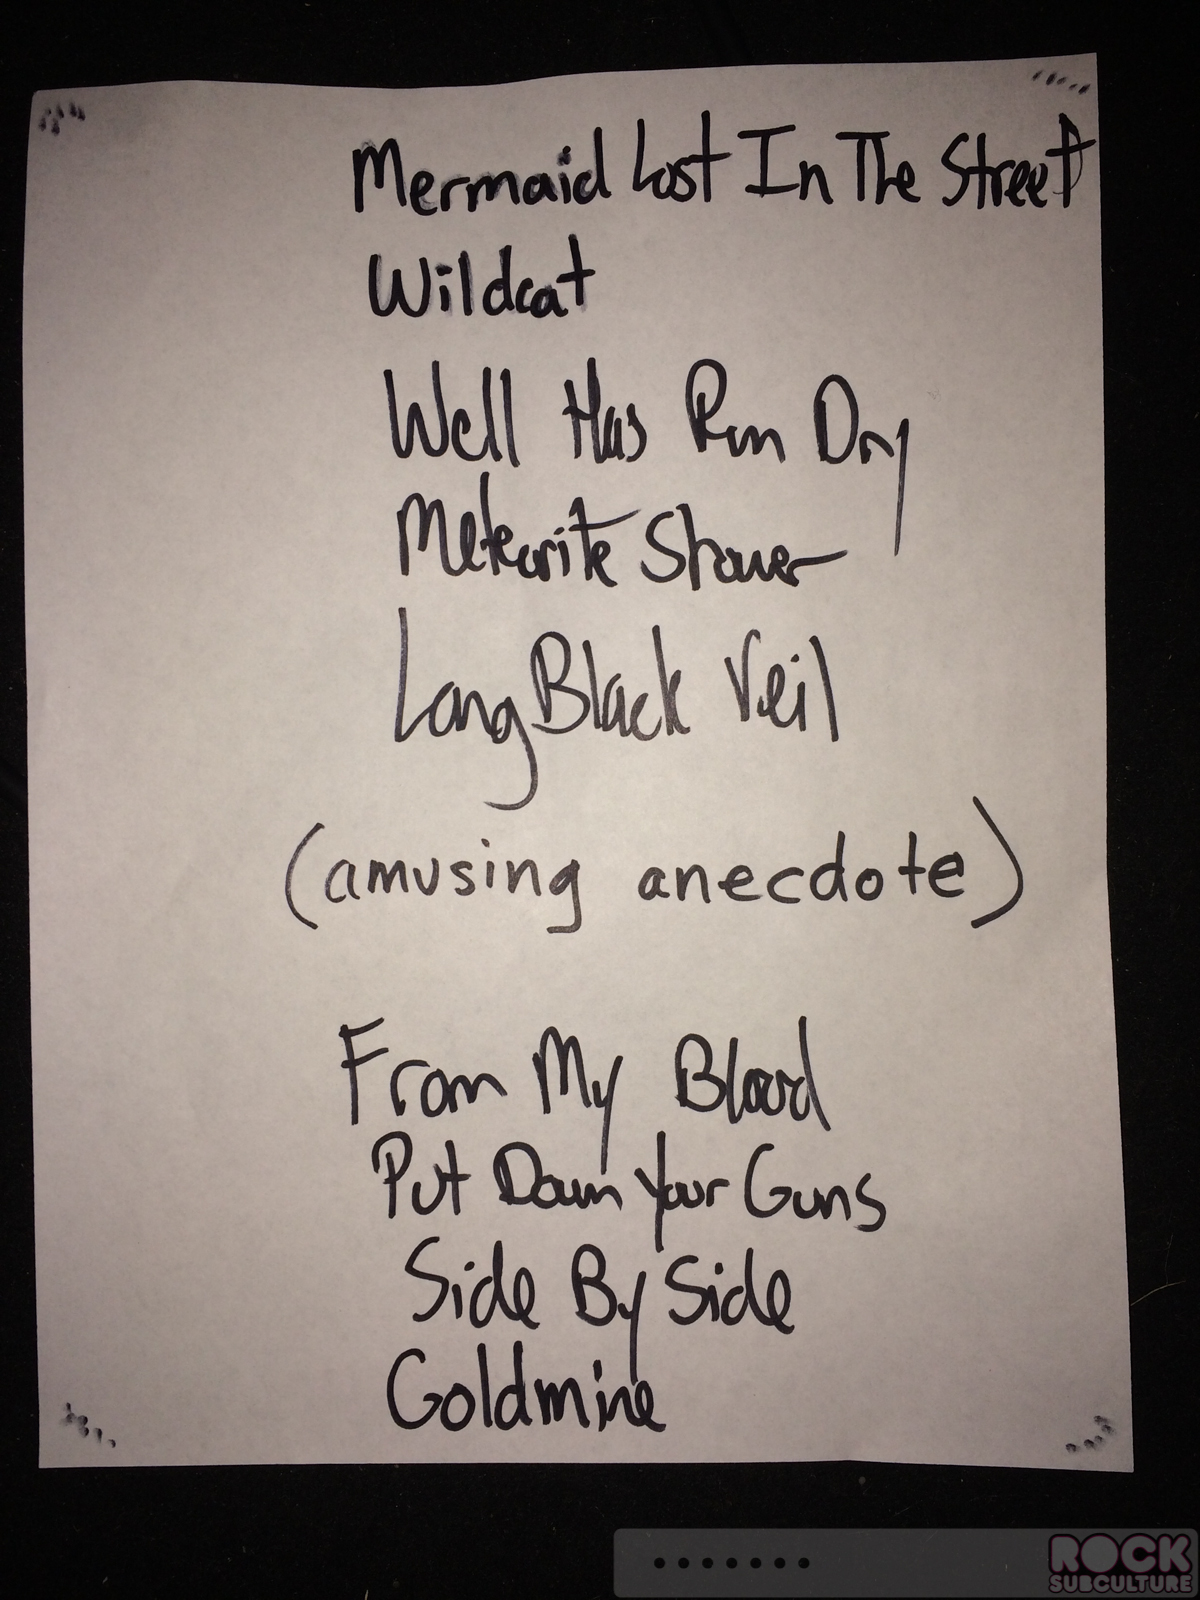 Mermaid Lost In The Street
Wildcat
Well Has Run Dry
Meteorite Shower
Long Black Veil
(amusing anecdote)
From My Blood
Put Down Your Guns
Side By Side
Goldmine
ROCK
SUBCULTURE